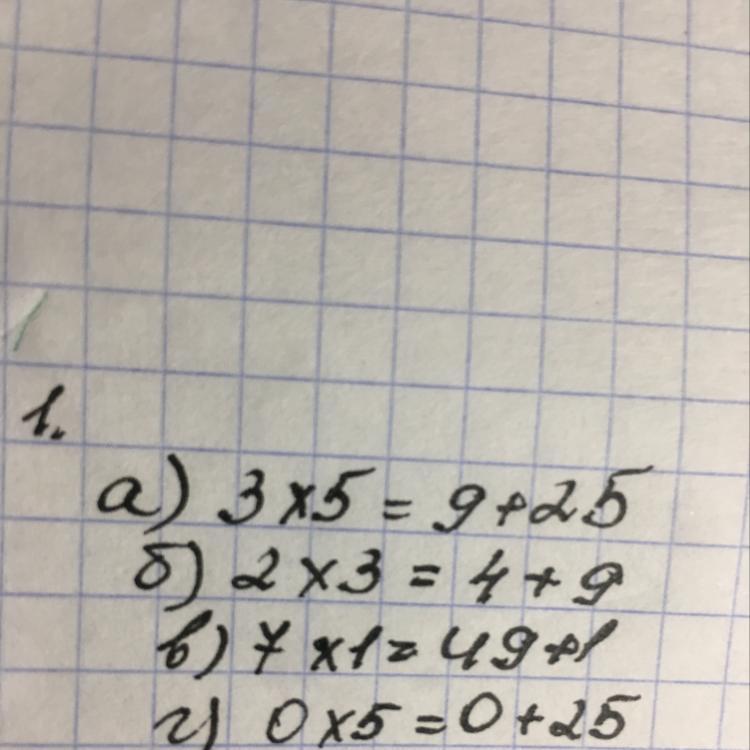 1.
а) 3 x 5 = 9 + 25
б) 2 x 3 = 4 + 9
в) 7 x 1 = 49 + 1
г) 0 x 5 = 0 + 25